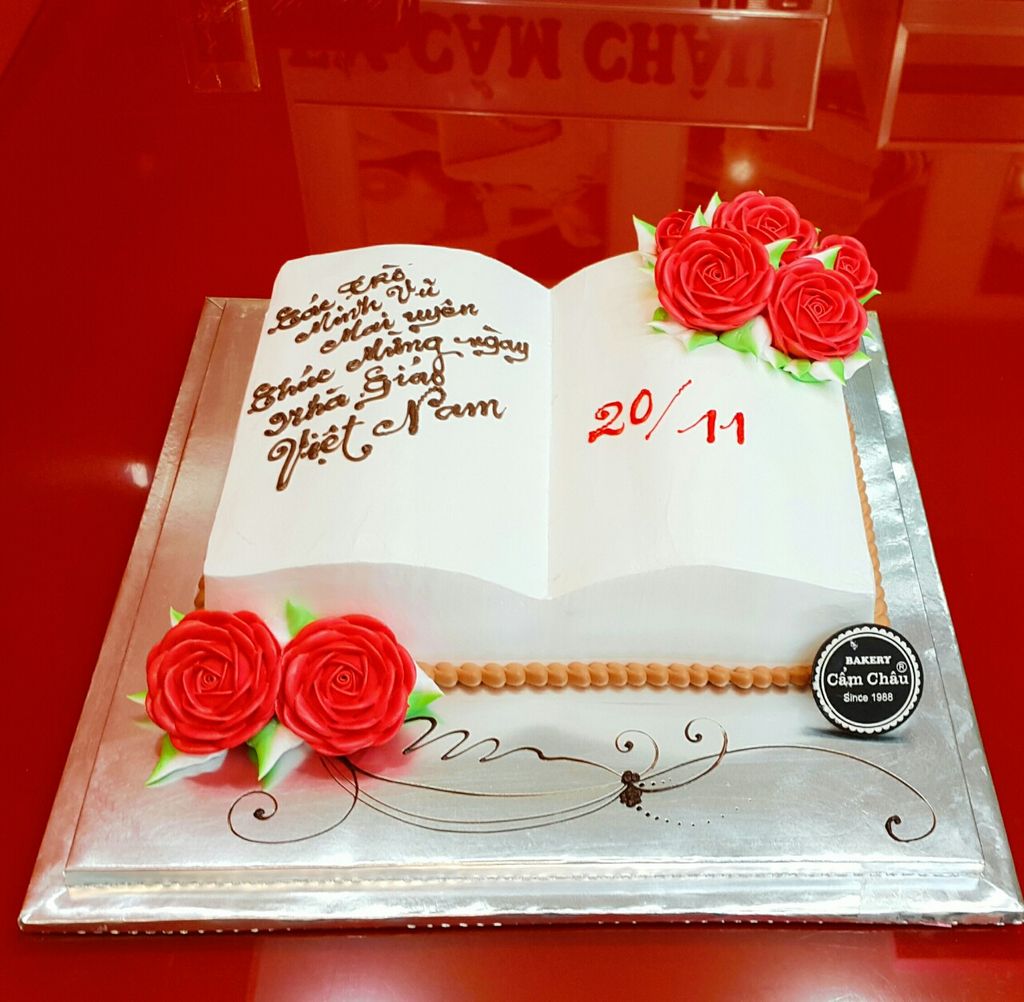 CẨM CHÂU
Các trò
Minh Vũ
Mai uyên
Chúc Mừng ngày
Nhà Giáo
Việt Nam
20/11
BAKERY
Cẩm Châu®
Since 1988